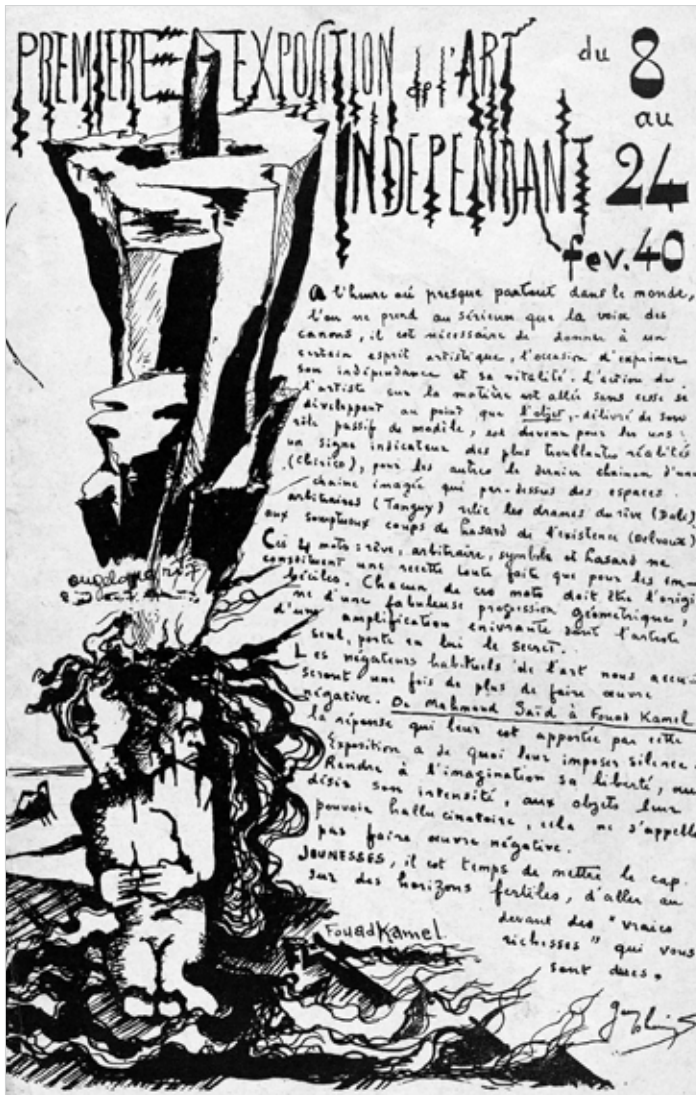 PREMIERE EXPOSITION de l'ART
INDEPENDANT
du 8
au
24
fev. 40
A l'heure où presque partout dans le monde,
l'on ne prend au sérieux que la voix des
canons, il est nécessaire de donner à un
certain esprit artistique, l'occasion d'exprimer
son indépendance et sa vitalité. L'action de
l'artiste sur la matière est allée sans cesse se
développant au point que l'objet, délivré de son
rôle passif de modèle, est devenu pour les uns
un signe indicateur des plus troublantes réalités
(Chirico), pour les autres le dernier chainon d'une
chaine imagée qui par-dessus des espaces
arbitraires (Tanguy) relie les drames du rêve (Dali)
aux somptueux coups de hasard de l'existence (Delvaux)
Ces 4 mots : rêve, arbitraire, symbole et hasard ne
constituent une recette toute faite que pour les im-
béciles. Chacun de ces mots doit être l'origi
ne d'une fabuleuse progression géométrique,
d'une amplification enivrante dont l'artiste
seul, porte en lui le secret.
Les négateurs habituels de l'art nous accu-
seront une fois de plus de faire œuvre
négative. De Mahmoud Saïd à Fouad Kamel
la réponse qui leur est apportée par cette
Exposition a de quoi leur imposer silence.
Rendre à l'imagination sa liberté, au
désir son intensité, aux objets leur
pouvoir hallucinatoire, cela ne s'appelle
pas faire œuvre négative.
JEUNESSES, il est temps de mettre le cap
sur des horizons fertiles, d'aller au
devant des "vraies
richesses" qui vous
sont dues.
Fouad Kamel